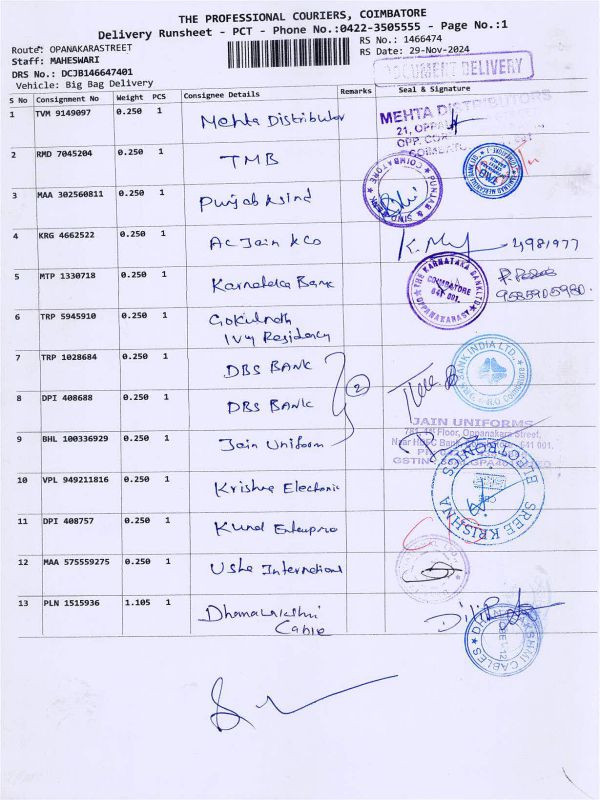 THE PROFESSIONAL COURIERS, COIMBATORE
Delivery Runsheet - PCT - Phone No.:0422-3505555 - Page No.:1
Route: OPANAKARASTREET
RS No.: 1466474
Staff: MAHESWARI
RS Date: 29-Nov-2024
DRS No.: DCJB146647401
DOCUMENT DELIVERY
Vehicle: Big Bag Delivery
S No Consignment No Weight PCS Consignee Details Remarks Seal & Signature
1 TVM 9149097 0.250 1 Mehta Distributor
MEHTA DISTRIBUTORS
2 RMD 7045204 0.250 1 TMB
3 MAA 302560811 0.250 1 Punjab & sind
PUNJAB & SIND BANK COIMBATORE
4 KRG 4662522 0.250 1 AC Jain & Co
5 MTP 1330718 0.250 1 Karnataka Bank
THE KARNATAKA BANK LTD.
COIMBATORE
641 001.
OPPANAKARA ST
6 TRP 5945910 0.250 1 Gokulnath
Ivy Residency
7 TRP 1028684 0.250 1 DBS BANK
2
8 DPI 408688 0.250 1 DBS BANK
BANK INDIA LTD.,
9 BHL 100336929 0.250 1 Jain Uniform
JAIN UNIFORMS
Floor, Oppanakara Street,
10 VPL 949211816 0.250 1 Krishna Electronic
SREE KRISHNA ELECTRONICS
11 DPI 408757 0.250 1 Kund Enterprise
12 MAA 575559275 0.250 1 Usha International
13 PLN 1515936 1.105 1 Dhanalakshmi
Cable
CABLES